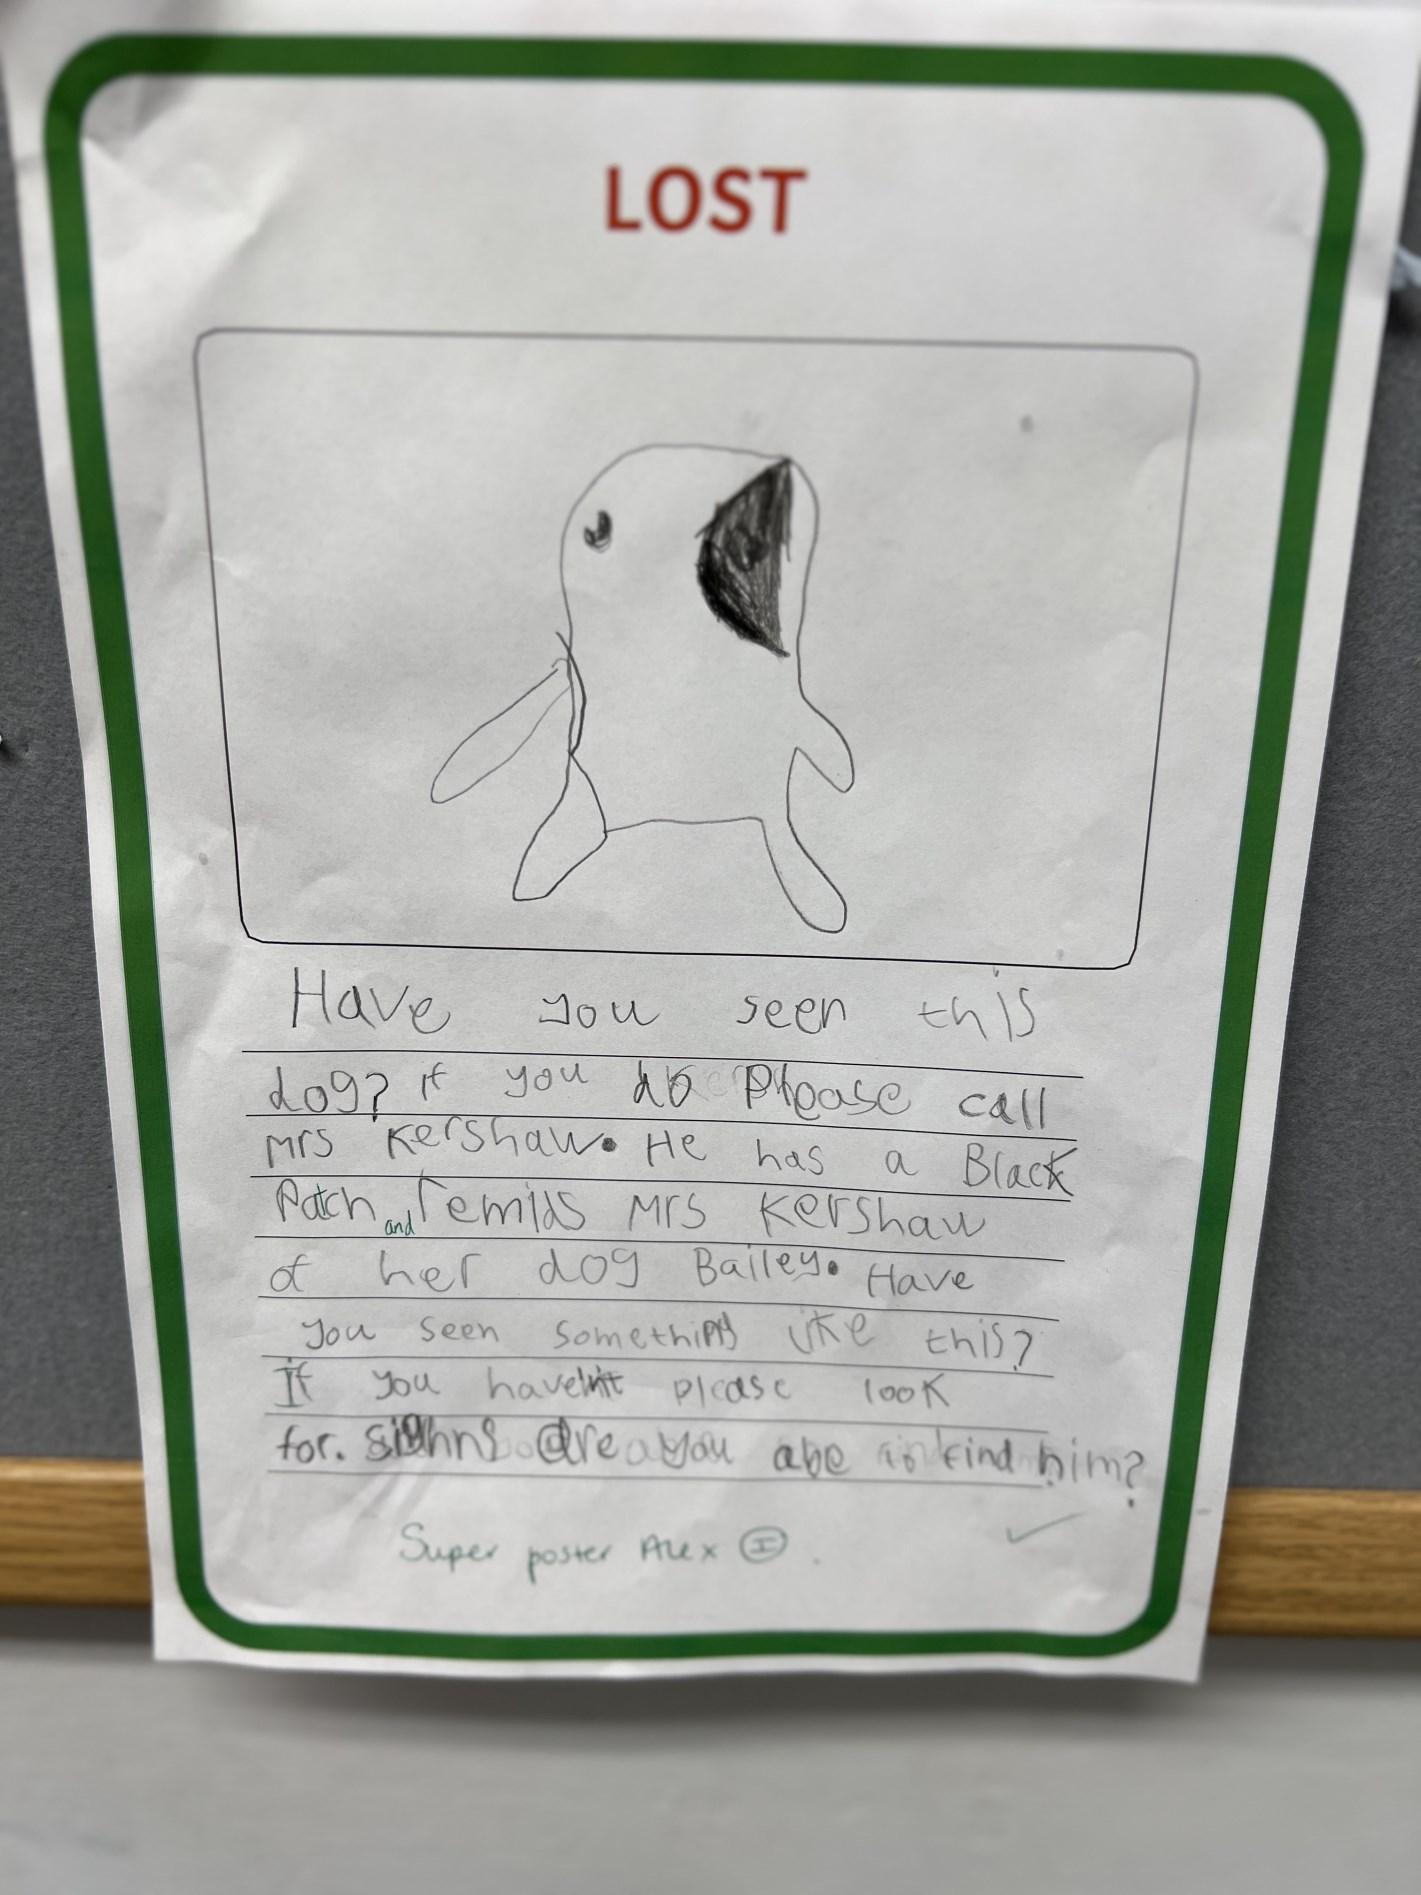 LOST
Have you seen this
dog? if you do Please call
Mrs Kershaw. He has a Black
Patch and remids Mrs Kershaw
of her dog Bailey. Have
you seen something like this?
If you haven't please look
for. sighns are you abe to find him?
Super poster Alex